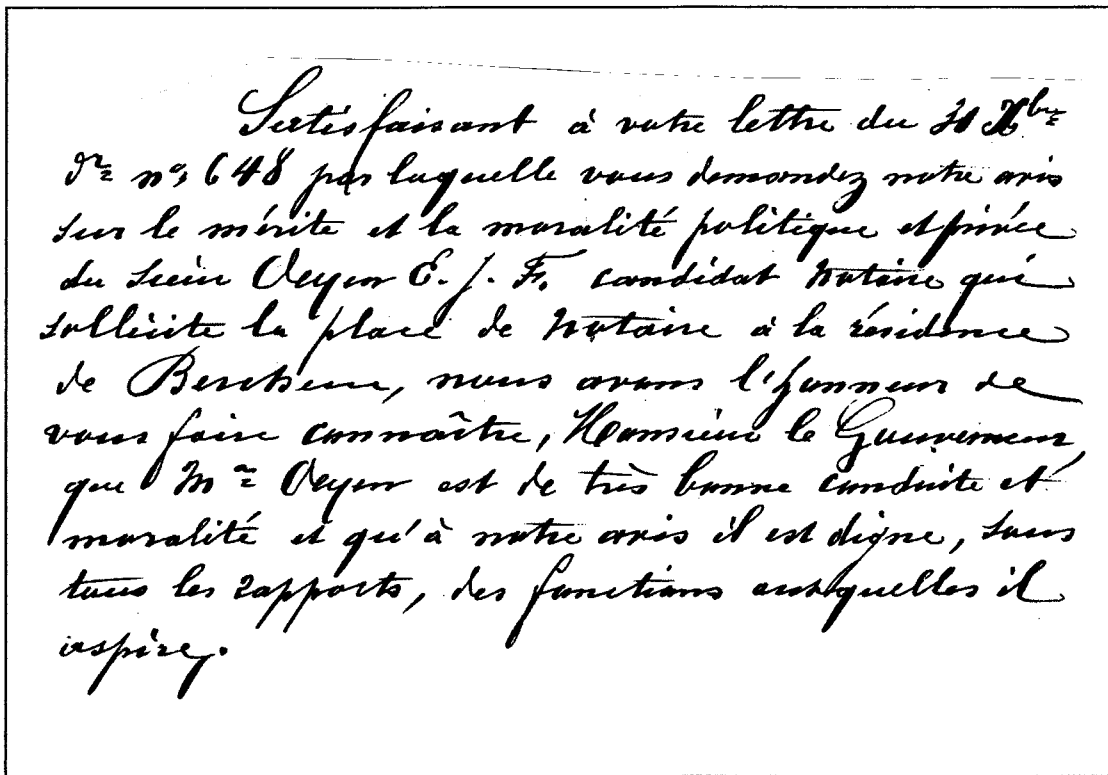 Satisfaisant à votre lettre du 30 Xbre
dr nº 648 par laquelle vous demandez notre avis
sur le mérite et la moralité politique et privée
du sieur Oeyen E. J. F. candidat notaire qui
sollicite la place de notaire à la résidence
de Berchem, nous avons l'honneur de
vous faire connaître, Monsieur le Gouverneur,
que Mr Oeyen est de très bonne conduite et
moralité et qu'à notre avis il est digne, sous
tous les rapports, des fonctions auxquelles il
aspire.